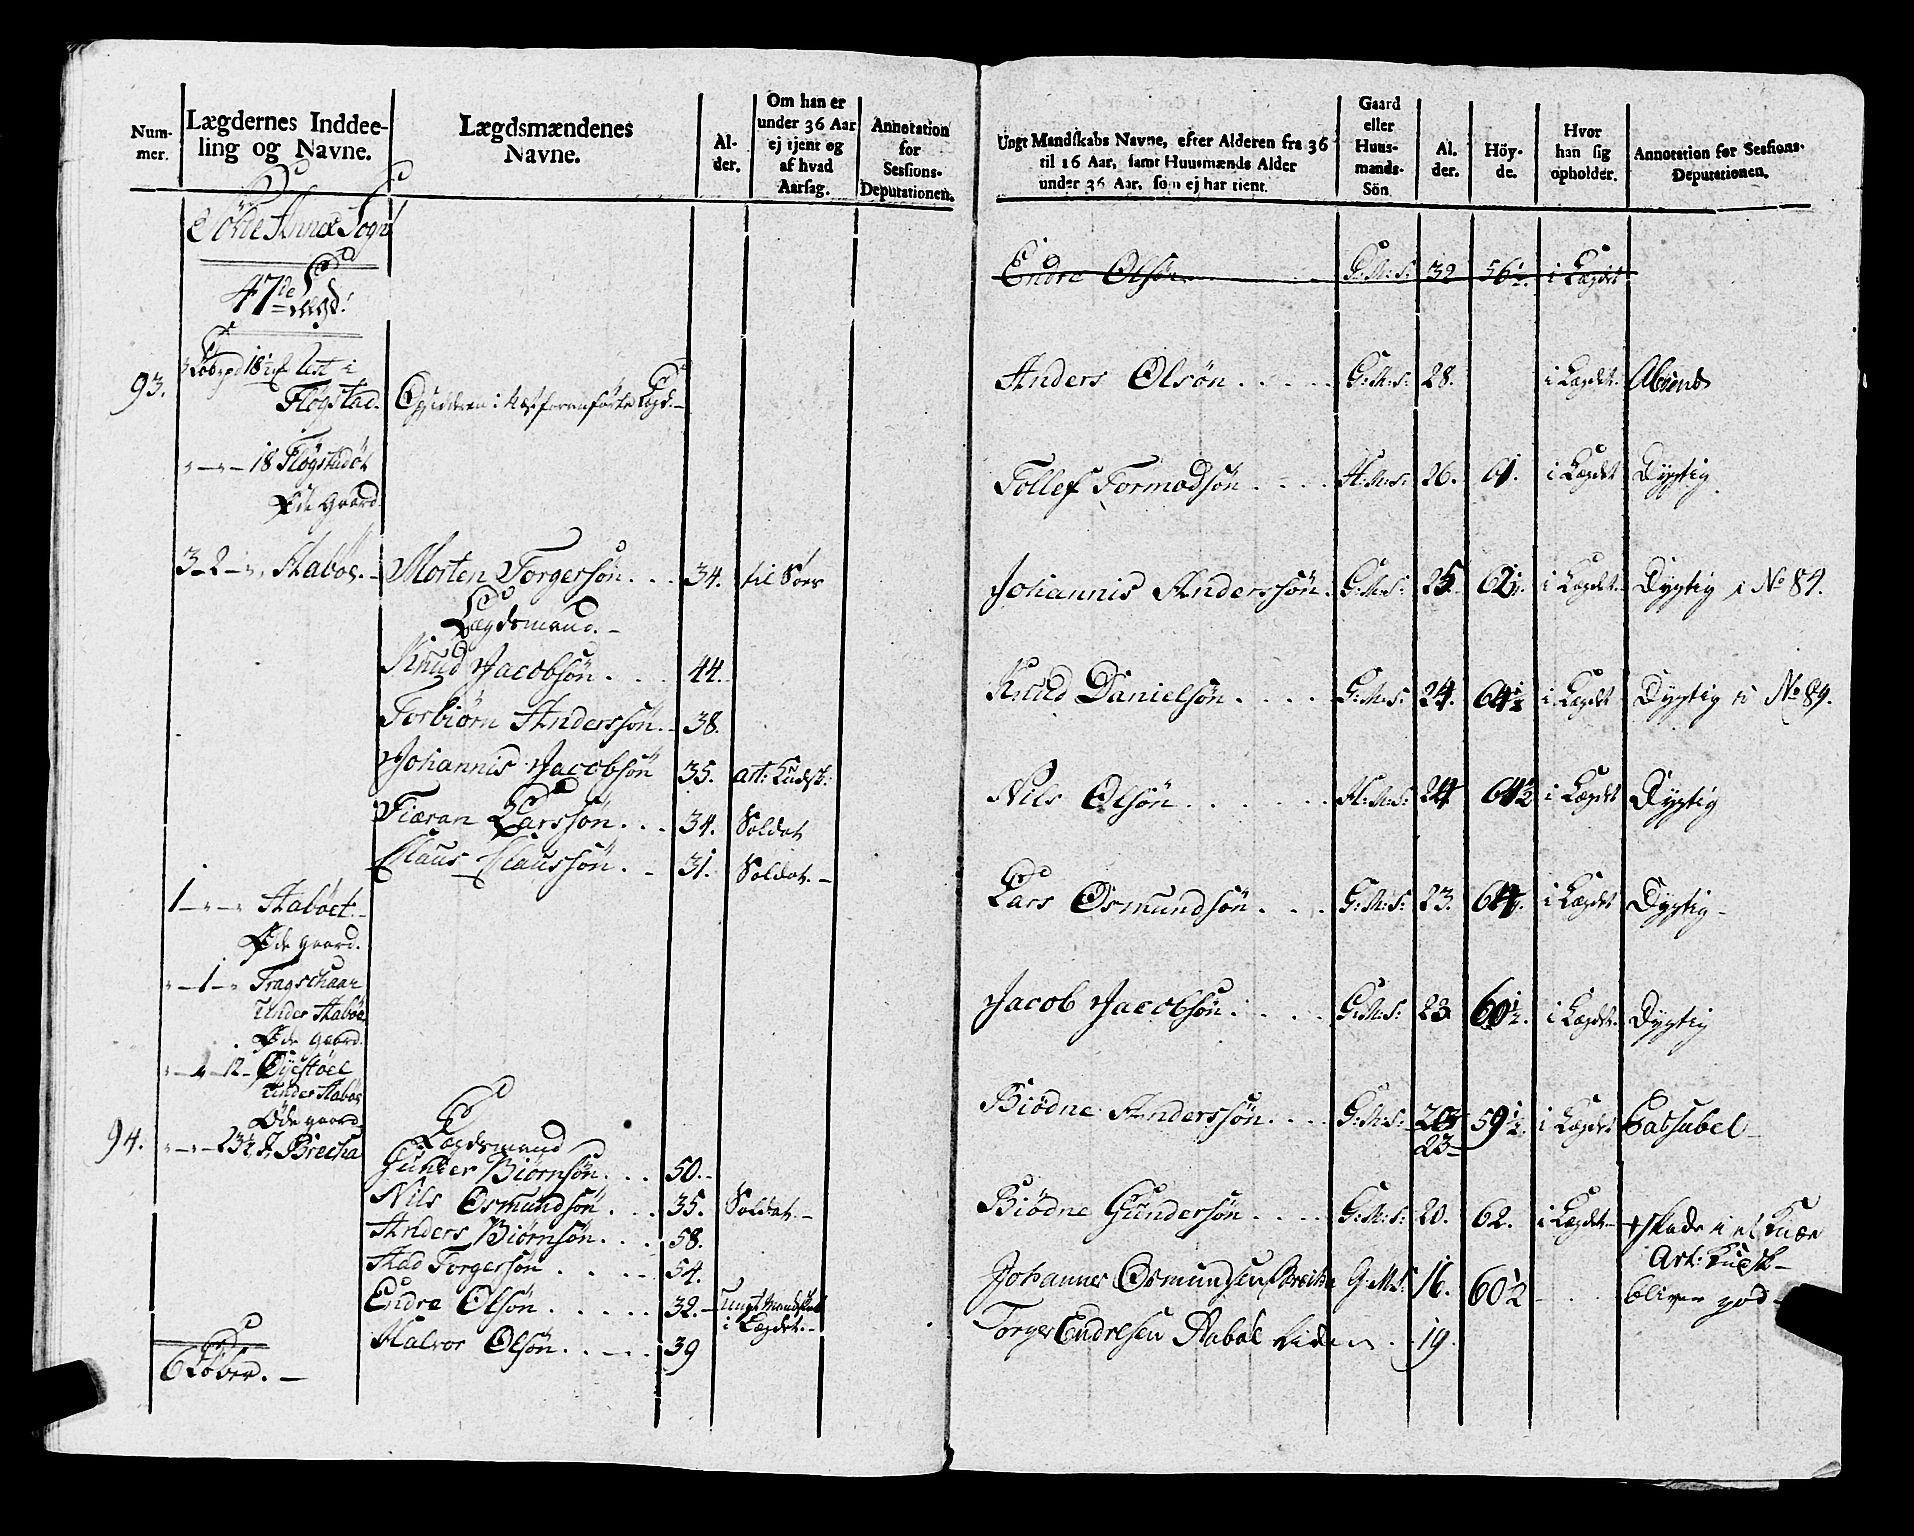 Num-
mer.
Lægdernes Inddee-
ling og Navne.
Lægdsmændenes
Navne.
Al-
der.
Om han er
under 36 Aar
ej tjent og
af hvad
Aarsag.
Annotation
for
Sessions-
Deputationen.
Sogn
47de Lægd.
93.
18
Flögstad.
Lægd.
18 Flögstadöt
Öde Gaard
3-2 Aaböe.
Morten Torgersön. 34. til Söes
Lægdsmand.
Knud Jacobsön. 44.
Torbiörn Anderssön. 38.
Johannis Jacobsön 35. art: Kudsk:
Larssön. 34. Soldat
Claus Claussön. 31. Soldat.
1 Aaböet.
Öde Gaard.
1 Tragschaar
under Aaböe
Öde Gaard.
Öyestöel
under Aaböe
Öde Gaard
94. 23½ Brecha
Lægdsmand
Gunder Biörnsön. 50.
Nils Osmundsön 35. Soldat.
Anders Biörnsön. 58.
Aad Torgersön 54.
Endre Olsön 32. ungt Mandskab
i Lægdet.
Halvor Olsön 39
6 Köber.
Ungt Mandskabs Navne, efter Alderen fra 36
til 16 Aar, samt Huusmænds Alder
under 36 Aar, som ej har tient.
Gaard
eller
Huus-
mands-
Sön
Al.
der.
Höy-
de.
Hvor
han sig
opholder.
Annotation for Sessions-
Deputationen.
Endre Olsön G:M:S: 32 56½. i Lægdet
Anders Olsön G:M:S: 28. i Lægdet. Absent
Tollef Tormodsön H:M:S: 26. 61. i Lægdet Dygtig
Johannis Anderssön. G:M:S: 25. 62 i Lægdet. Dygtig i No 84.
Knud Danielsön G:M:S: 24. 64½ i Lægdet Dygtig i No 89.
Nils Olsön H:M:S: 24 64½ i Lægdet Dygtig
Lars Osmundsön G:M:S: 23. 64. i Lægdet Dygtig
Jacob Jacobsön G:M:S: 23 60½. i Lægdet. Dygtig
Biödne Anderssön G:M:S: 59½ i Lægdet Cassabel
23
Biödne Gundersön G:M:S: 20. 62. i Lægdet skade i et Knæe
Art: Kudsk
Johannes Osmundsen Breche G:M:S 16. 60½ bliver god
Torger Endresen Aaböe 19.